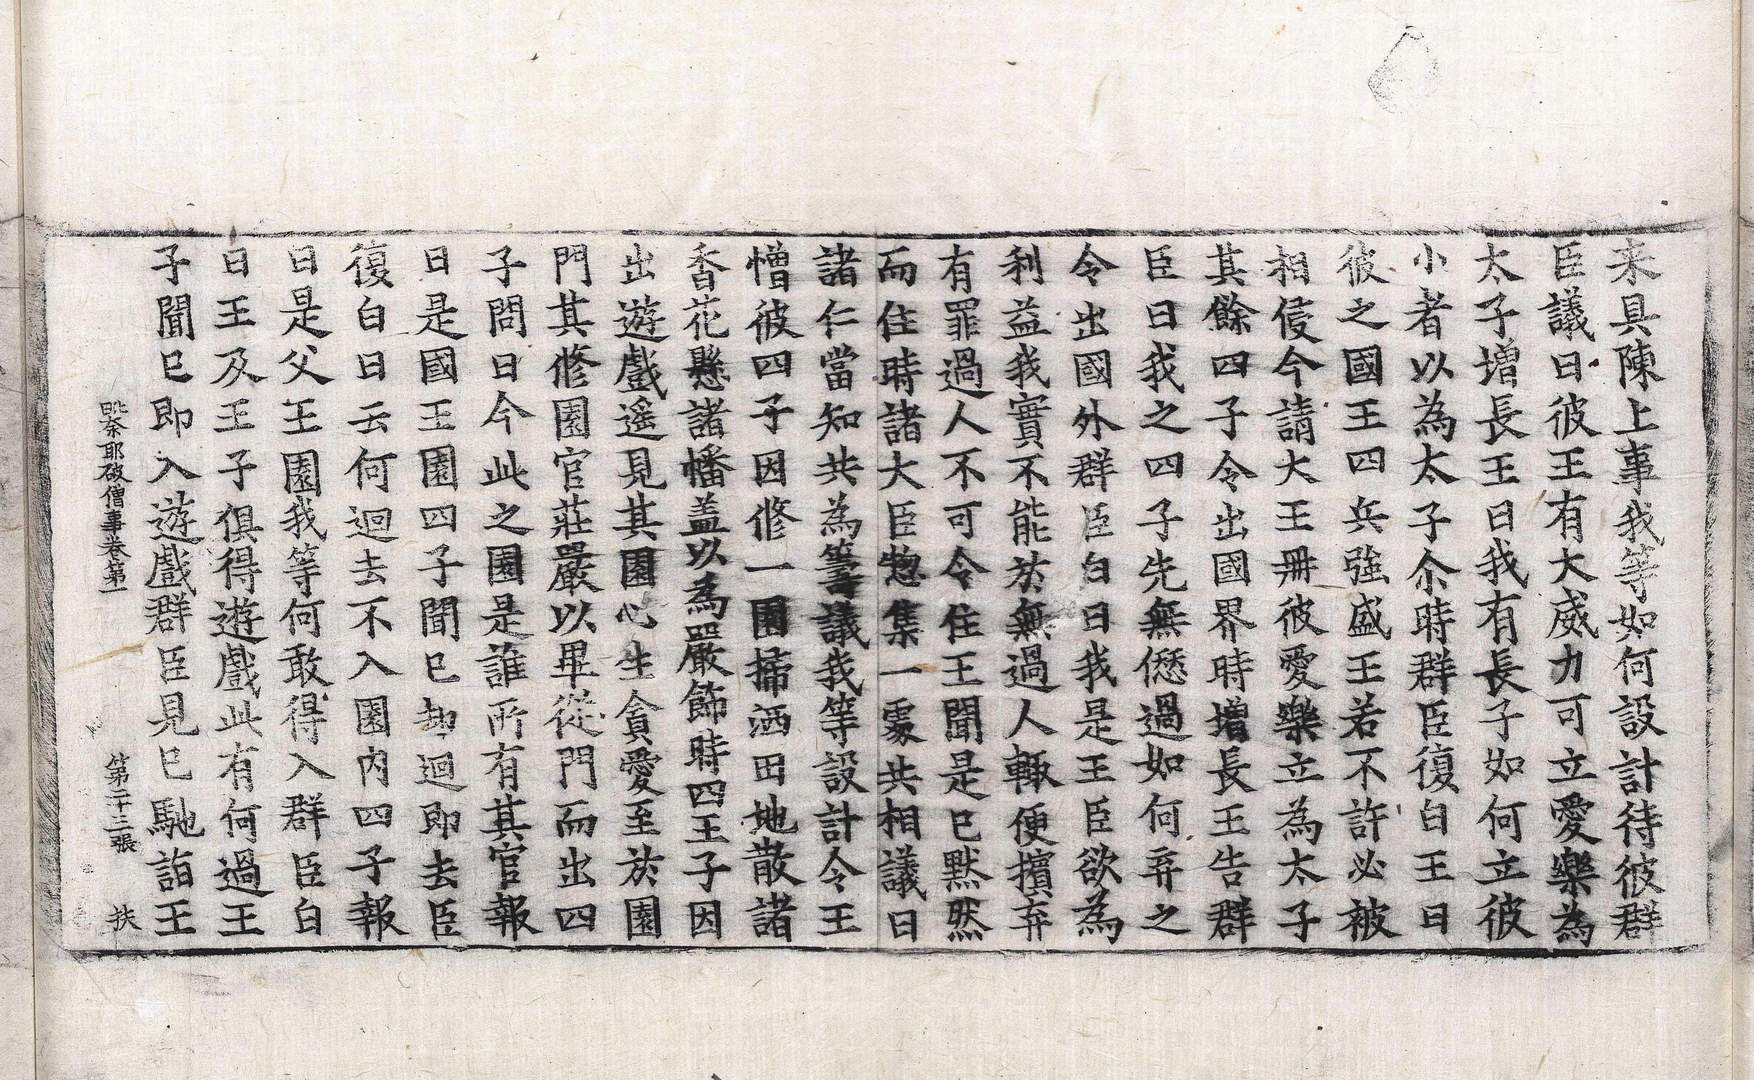 来具陳上事我等如何設計待彼群
臣議曰彼王有大威力可立愛樂為
太子增長王曰我有長子如何立彼
小者以為太子尒時群臣復白王曰
彼之國王四兵強盛王若不許必被
相侵今請大王冊彼愛樂立為太子
其餘四子令出國界時增長王告群
臣曰我之四子先無愆過如何弃之
令出國外群臣白曰我是王臣欲為
利益我實不能於無過人輙便擯弃
有罪過人不可令住王聞是已默然
而住時諸大臣惣集一處共相議曰
諸仁當知共為籌議我等設計令王
憎彼四子因修一園掃洒田地散諸
香花懸諸幡盖以為嚴飾時四王子因
出遊戲遥見其園心生貪愛至於園
門其修園官莊嚴以畢從門而出四
子問曰今此之園是誰所有其官報
曰是國王園四子聞已却迴即去臣
復白曰云何迴去不入園內四子報
曰是父王園我等何敢得入群臣白
曰王及王子俱得遊戲此有何過王
子聞已即入遊戲群臣見已馳詣王
毗奈耶破僧事卷第一 第二十三張 扶